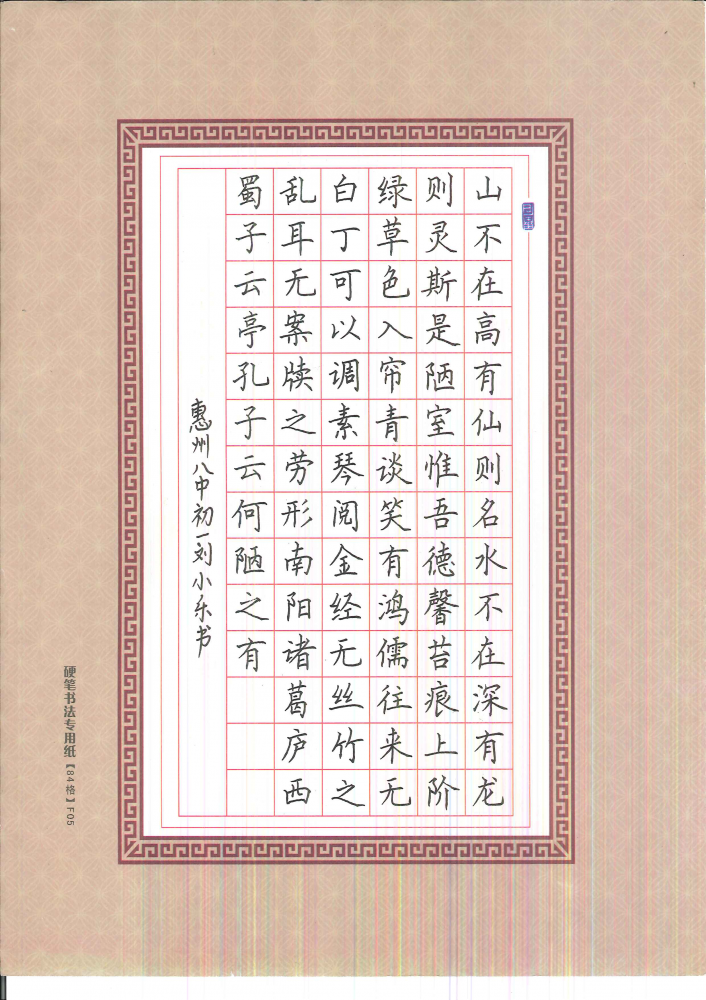 山不在高有仙则名水不在深有龙
则灵斯是陋室惟吾德馨苔痕上阶
绿草色入帘青谈笑有鸿儒往来无
白丁可以调素琴阅金经无丝竹之
乱耳无案牍之劳形南阳诸葛庐西
蜀子云亭孔子云何陋之有
惠州八中初一刘小乐书
硬笔书法专用纸【84格】F05